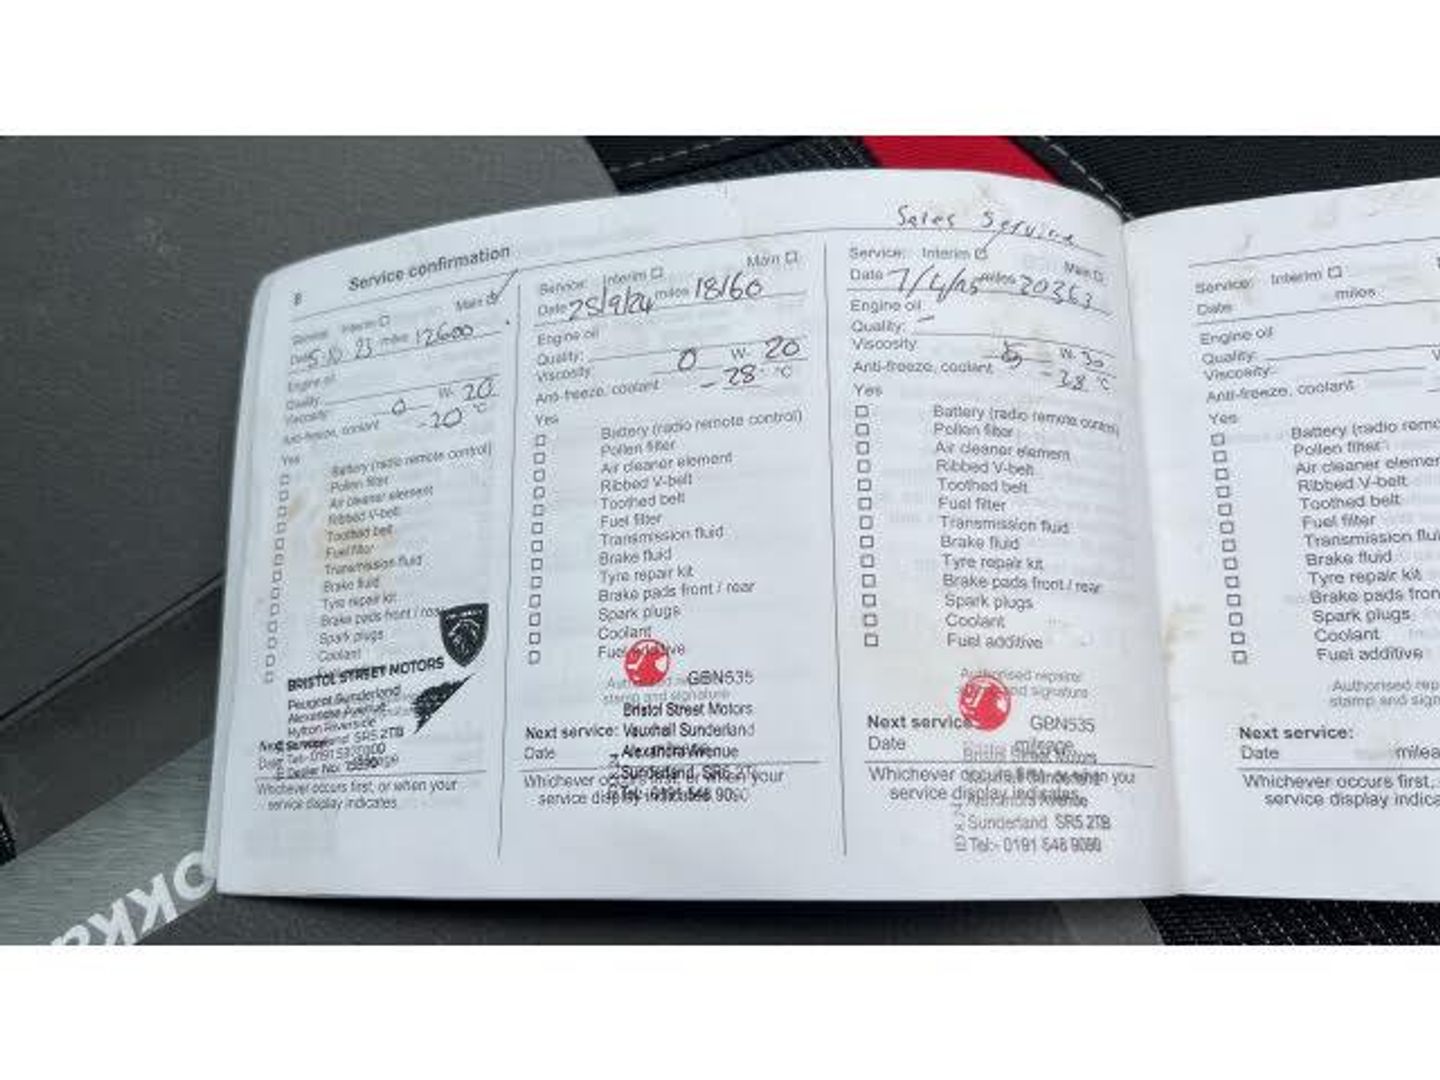 8 Service confirmation
Service: Interim ☐ Main ☑
Date 5·10 23 miles 12600
Engine oil
Quality:
Viscosity: 0 W- 20
Anti-freeze, coolant -20 °C
Yes
☐ Battery (radio remote control)
☐ Pollen filter
☐ Air cleaner element
☐ Ribbed V-belt
☐ Toothed belt
☐ Fuel filter
☐ Transmission fluid
☐ Brake fluid
☐ Tyre repair kit
☐ Brake pads front / rear
☐ Spark plugs
☐ Coolant
BRISTOL STREET MOTORS
Peugeot Sunderland
Alexandra Avenue
Hylton Riverside
SR5 2TB
Next Service:
Date
Whichever occurs first, or when your
service display indicates
Service: Interim ☐ Main ☐
Date 25/9/24 miles 18160
Engine oil
Quality:
Viscosity: 0 W- 20
Anti-freeze, coolant -28 °C
Yes
☐ Battery (radio remote control)
☐ Pollen filter
☐ Air cleaner element
☐ Ribbed V-belt
☐ Toothed belt
☐ Fuel filter
☐ Transmission fluid
☐ Brake fluid
☐ Tyre repair kit
☐ Brake pads front / rear
☐ Spark plugs
☐ Coolant
☐ Fuel additive
stamp and signature
GBN535
Bristol Street Motors
Next service: Vauxhall Sunderland
Date Alexandra Avenue
Whichever occurs first, or when your
Sunderland SR5 2T
service display indicates
Tel:- 0191 548 9090
Sales Service
Service: Interim ☐ Main ☐
Date 7/4/25 miles 20363
Engine oil
Quality:
Viscosity W- 30
Anti-freeze, coolant -38 °C
Yes
☐ Battery (radio remote control)
☐ Pollen filter
☐ Air cleaner element
☐ Ribbed V-belt
☐ Toothed belt
☐ Fuel filter
☐ Transmission fluid
☐ Brake fluid
☐ Tyre repair kit
☐ Brake pads front / rear
☐ Spark plugs
☐ Coolant
☐ Fuel additive
Authorised repairer
and signature
Next service GBN535
Date mileage
Bristol Street Motors
Whichever occurs first, or when you
service display indicates
Alexandra Avenue
Sunderland SR5 2TB
Tel:- 0191 548 9090
Service: Interim ☐
Date: miles
Engine oil
Quality:
Viscosity:
Anti-freeze, coolant
Yes
☐ Battery (radio remo
☐ Pollen filter
☐ Air cleaner elemen
☐ Ribbed V-belt
☐ Toothed belt
☐ Fuel filter
☐ Transmission flui
☐ Brake fluid
☐ Tyre repair kit
☐ Brake pads fron
☐ Spark plugs
☐ Coolant
☐ Fuel additive
Authorised rep
stamp and sign
Next service:
Date milea
Whichever occurs first,
service display indica
OKKA